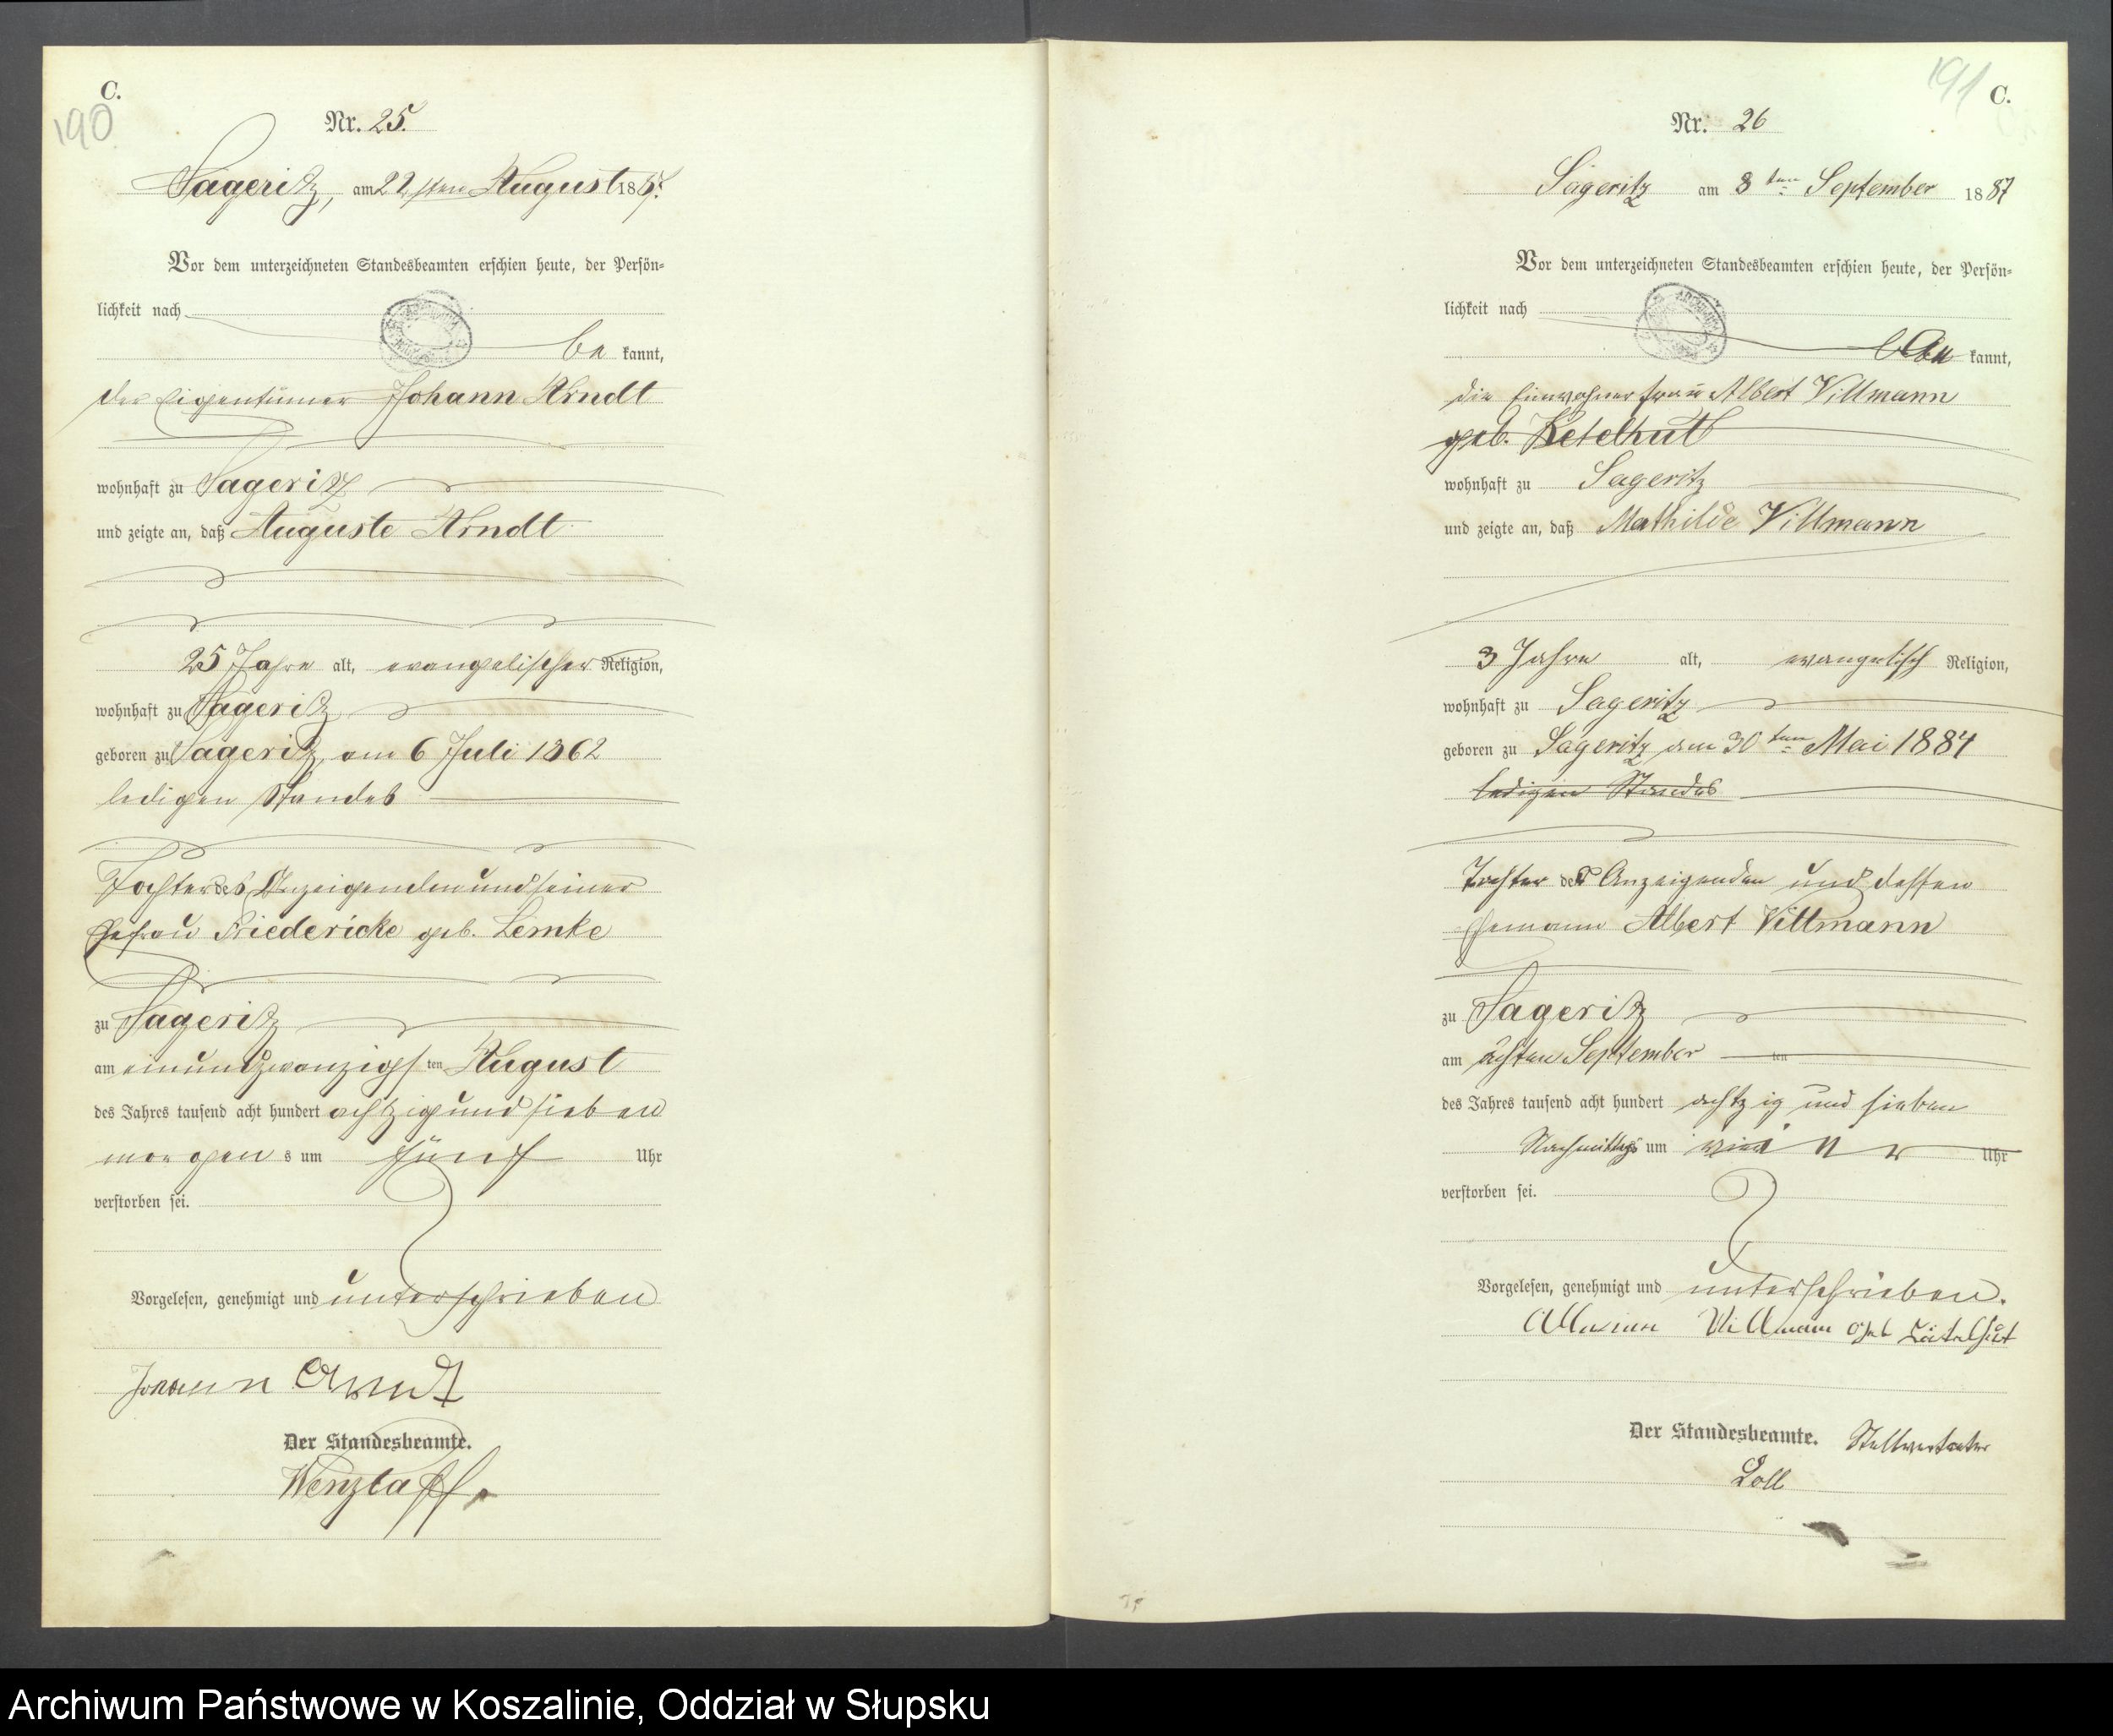 C.
190
Nr. 25.
Sageritz, am 22sten August 1887.
Vor dem unterzeichneten Standesbeamten erschien heute, der Persön-
lichkeit nach
be kannt,
der Eigentümer Johann Arndt
wohnhaft zu Sageritz
und zeigte an, daß Auguste Arndt
25 Jahre alt, evangelischer Religion,
wohnhaft zu Sageritz
geboren zu Sageritz, am 6 Juli 1862
ledigen Standes
Tochter des Anzeigenden und seiner
Ehefrau Friedericke geb. Lemke
zu Sageritz
am einundzwanzigsten August
des Jahres tausend acht hundert achtzig und sieben
morgens um fünf Uhr
verstorben sei.
Vorgelesen, genehmigt und unterschrieben
Johann Arndt
Der Standesbeamte.
Wenzlaff.
191
C.
Nr. 26
Sageritz am 8ten September 1887
Vor dem unterzeichneten Standesbeamten erschien heute, der Persön-
lichkeit nach
kannt,
die Einwohnerfrau Albert Villmann
geb. Ketelhut
wohnhaft zu Sageritz
und zeigte an, daß Mathilde Villmann
3 Jahre alt, evangelisch Religion,
wohnhaft zu Sageritz
geboren zu Sageritz am 30ten Mai 1884
ledigen Standes
Tochter der Anzeigenden und dessen
Ehemann Albert Villmann
zu Sageritz
am achten September ten
des Jahres tausend acht hundert achtzig und sieben
Nachmittags um Uhr
verstorben sei.
Vorgelesen, genehmigt und unterschrieben.
Villmann geb
Der Standesbeamte. Stellvertreter
Loll
Archiwum Państwowe w Koszalinie, Oddział w Słupsku